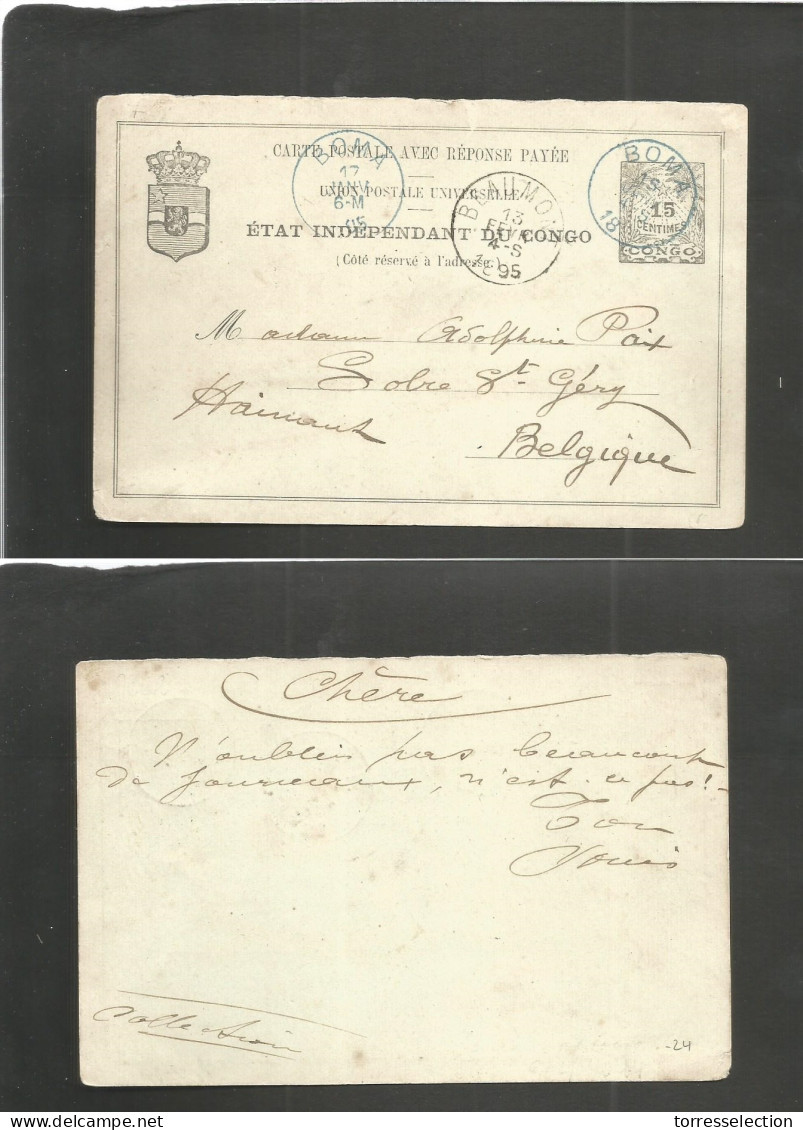 CARTE POSTALE AVEC RÉPONSE PAYÉE
UNION POSTALE UNIVERSELLE
ÉTAT INDÉPENDANT DU CONGO
(Côté réservé à l'adresse.)
BOMA
17
JANV
6-M
95
BEAUMONT
13
FÉVR
4-S
1895
BOMA
18
15
CENTIMES
CONGO
Madame Adolphine Paix
Solre St Géry
Hainaut
Belgique
Chère
N'oublies pas beaucoup
de journaux, n'est-ce pas!
Ton
Louis
Collection
-24
www.torresselection.com